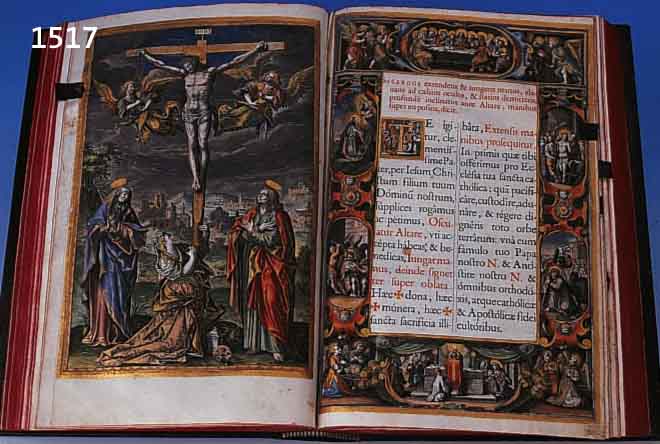 1517
INRI
extendens & iungens manus, ele-
uans ad cælum oculos, & statim demittens,
profunde inclinatus ante Altare, manibus
super eo positis, dicit.
TE igi-
tur, cle-
mentissime Pa-
ter, per Iesum Chri
stum filium tuum
Dominũ nostrum,
supplices rogamus
ac petimus, Oscu-
latur Altare, vti ac-
cepta habeas, & be-
nedicas, Iungit ma-
nus, deinde signat
super oblata.
Hæc ✠ dona, hæc
✠ munera, hæc ✠
sancta sacrificia illi-
bàta, Extensis ma-
nibus prosequitur.
In primis quæ tibi
offerimus pro Ec-
clesia tua sancta ca-
thólica; quã pacifi-
càre, custodire, adu-
nàre, & régere di-
gnéris toto orbe
terràrum: vnà cum
fámulo tuo Papa
nostro N. & Anti-
stite nostro N. &
ómnibus orthodó-
xis, atque cathólicæ
& Apostólicæ fidei
cultóribus.